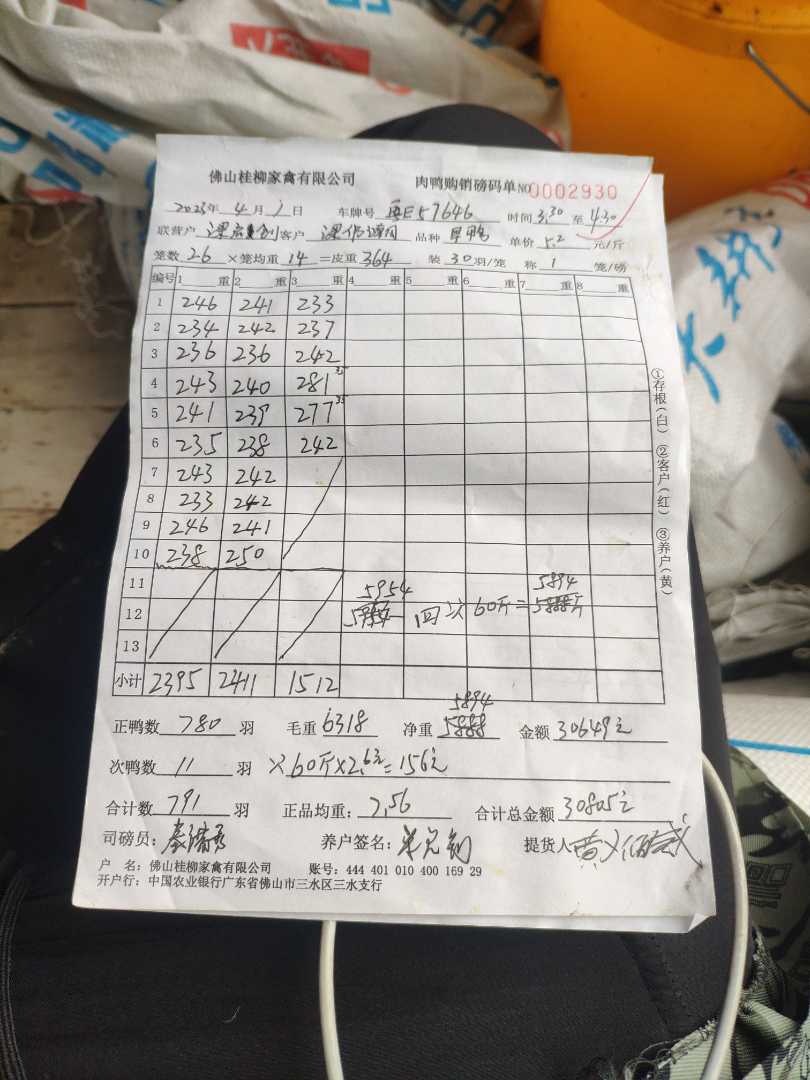 佛山桂柳家禽有限公司 肉鸭购销磅码单 NO 0002930
2023年 4月 1日 车牌号 粤E57646 时间 3.30 至 4.30
联营户 客户 品种 旱鸭 单价 5.2 元/斤
笼数 26 ×笼均重 14 =皮重 364 装 30 羽/笼 称 1 笼/磅
编号 1 重 2 重 3 重 4 重 5 重 6 重 7 重 8 重
1 246 241 233
2 234 242 237
3 236 236 242
4 243 240 281
5 241 239 277
6 235 238 242
7 243 242
8 233 242
9 246 241
10 238 250
11 5954 5894
12 四次60斤=
13
小计 2395 2411 1512
5894
正鸭数 780 羽 毛重 6318 净重 5888 金额 30649元
次鸭数 11 羽 次60斤×2.6元=156元
合计数 791 羽 正品均重: 7.56 合计总金额 30805元
司磅员: 养户签名: 提货人
户 名: 佛山桂柳家禽有限公司 账号: 444 401 010 400 169 29
开户行: 中国农业银行广东省佛山市三水区三水支行
①存根(白) ②客户(红) ③养户(黄)